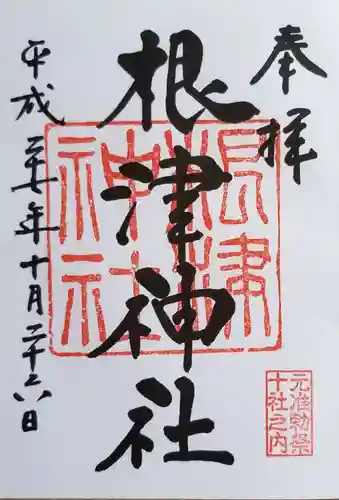 奉拝
根津神社
平成二十七年十月二十六日
根津
神社
元准勅祭
十社之内